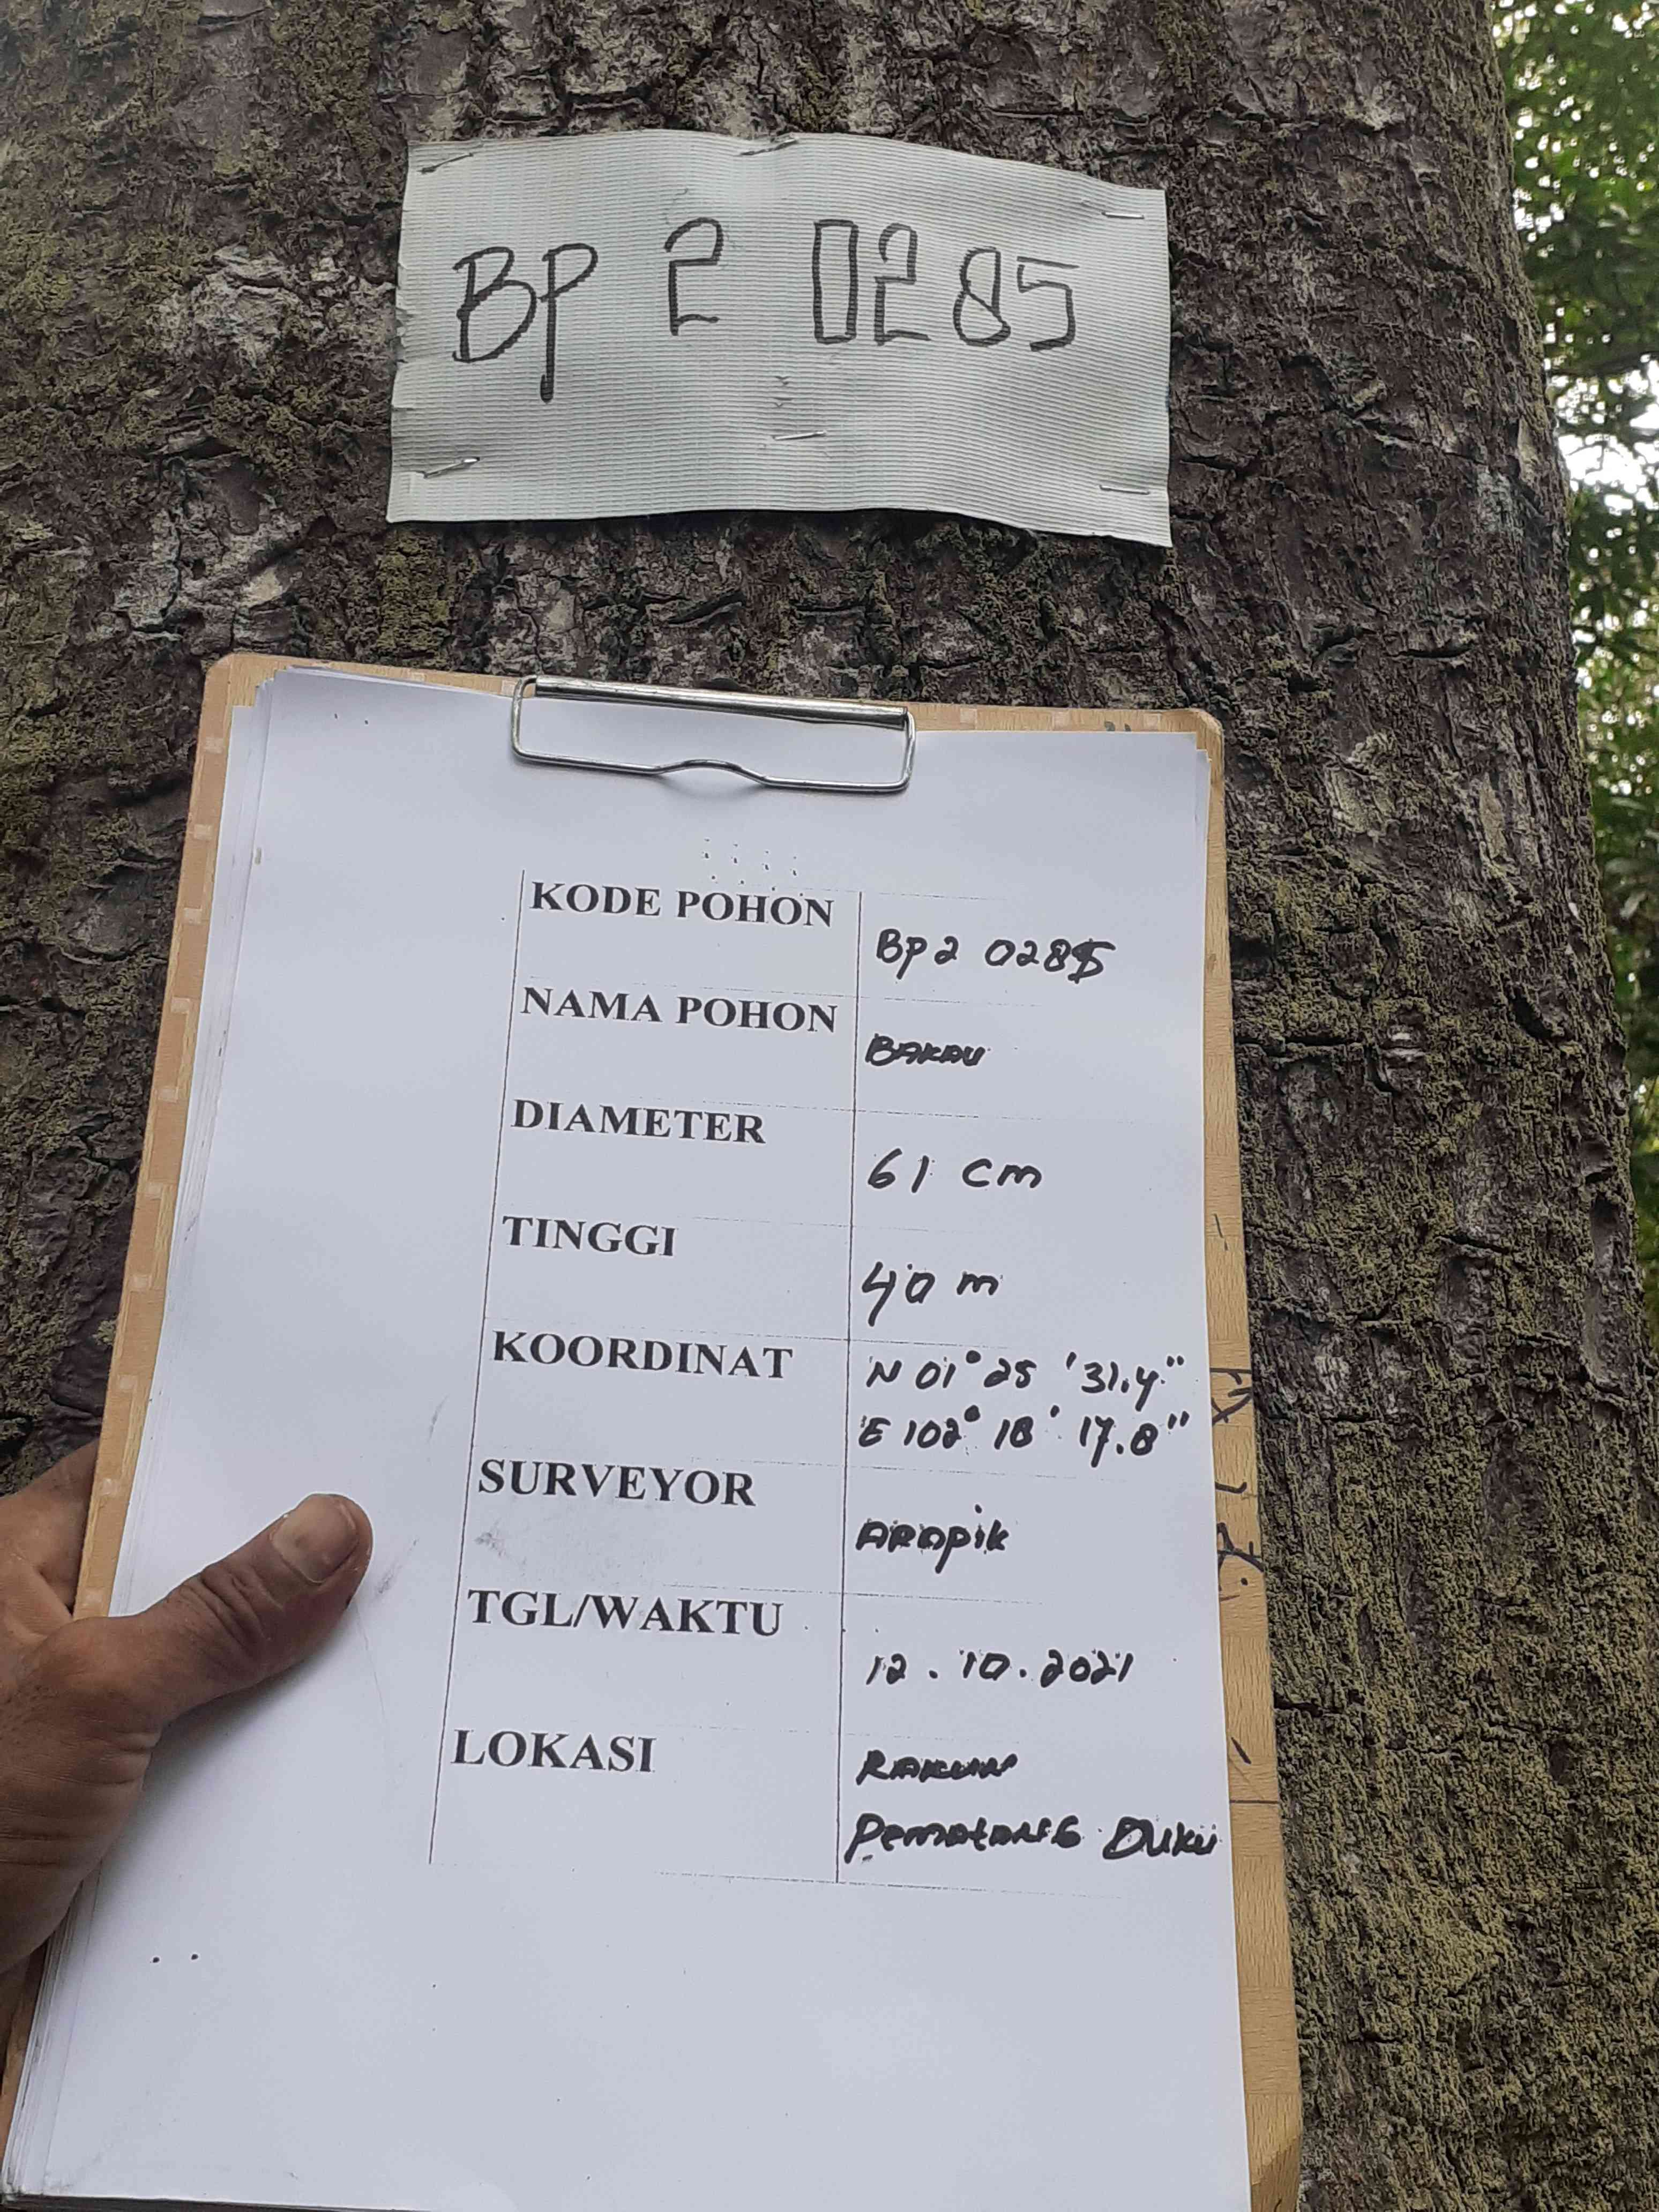 BP 2 0285
KODE POHON
BP2 0285
NAMA POHON
BAKAU
DIAMETER
61 cm
TINGGI
40 m
KOORDINAT
N 01° 25 '31.4"
E 102° 18' 17.8"
SURVEYOR
ARAPIK
TGL/WAKTU
12.10.2021
LOKASI
PemATANG DUKU